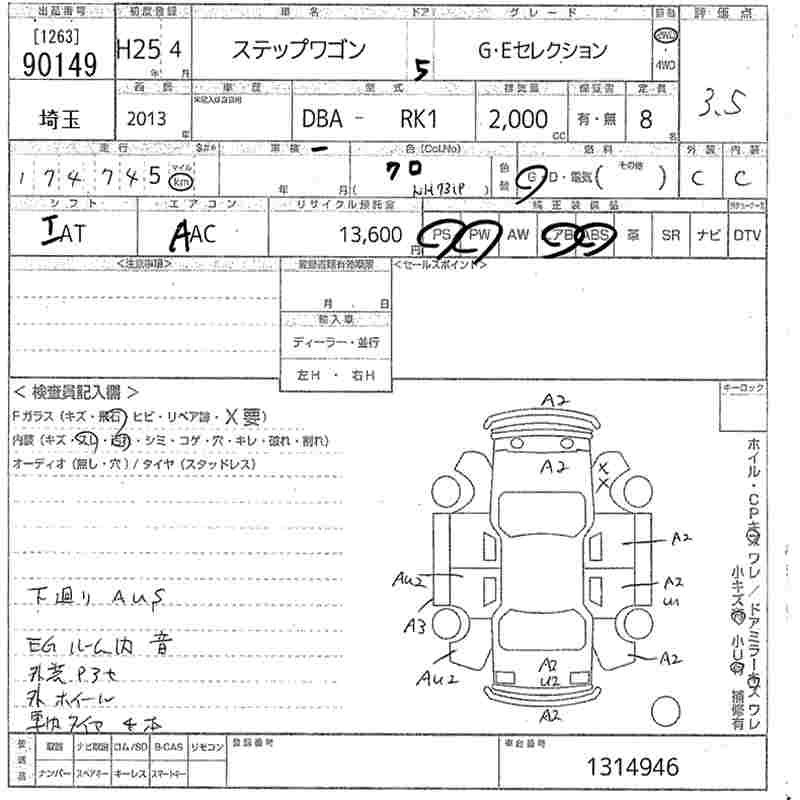 出品番号 初度登録 車名 ドア グレード 駆動 評価点
[1263]
90149 H25 4 年 月 ステップワゴン 5 G・Eセレクション 2WD・4WD
3.5
西暦 車歴 型式 排気量 保証書 定員
埼玉 2013 年 未記入は自家用 DBA - RK1 2,000 cc 有・無 8 名
走行 車検 色(Col.No) 色替 燃料 外装 内装
174745 マイル km 年 月 70 (NH731P) G・D・電気( その他 ) C C
シフト エアコン リサイクル預託金 純正装備品
IAT AAC 13,600 円 PS PW AW アB ABS 革 SR ナビ DTV
<注意事項> 登録書類有効期限 <セールスポイント>
月 日
輸入車
ディーラー・並行
左H・右H
<検査員記入欄> キーロック
Fガラス(キズ・飛石・ヒビ・リペア跡・X要)
内装(キズ・スレ・汚れ・シミ・コゲ・穴・キレ・破れ・割れ)
オーディオ(無し・穴)/タイヤ(スタッドレス)
A2
A2
X
X
A2
AU2 A2
U1
A3
AU2 A2
U2
A2
A2
ホイル・CPキズ ワレ/ドアミラーキズ ワレ
小キズ有 小U有 補修有
下廻り AUS
EGルーム内 音
外装 P3
外 ホイール
車内タイヤ 4本
後送品 取説 ナビ取説 ロム/SD B-CAS リモコン 登録番号 車台番号
ナンバー スペアキー キーレス スマートキー 1314946